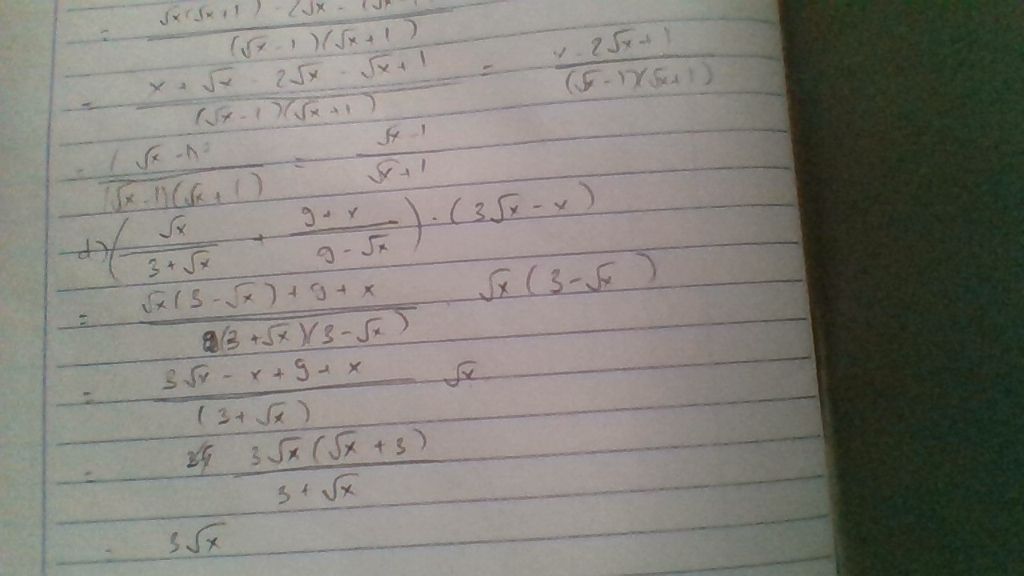 = √x(√x+1) - 2√x - (√x-1) / (√x-1)(√x+1)
= x + √x - 2√x - √x + 1 / (√x-1)(√x+1) = x - 2√x + 1 / (√x-1)(√x+1)
= (√x-1)² / (√x-1)(√x+1) = √x-1 / √x+1
d) (√x / 3+√x + 9+x / 9-√x) · (3√x - x)
= √x(3-√x) + 9 + x / (3+√x)(3-√x) · √x(3-√x)
= 3√x - x + 9 + x / (3+√x) √x
= 3√x(√x+3) / 3+√x
= 3√x